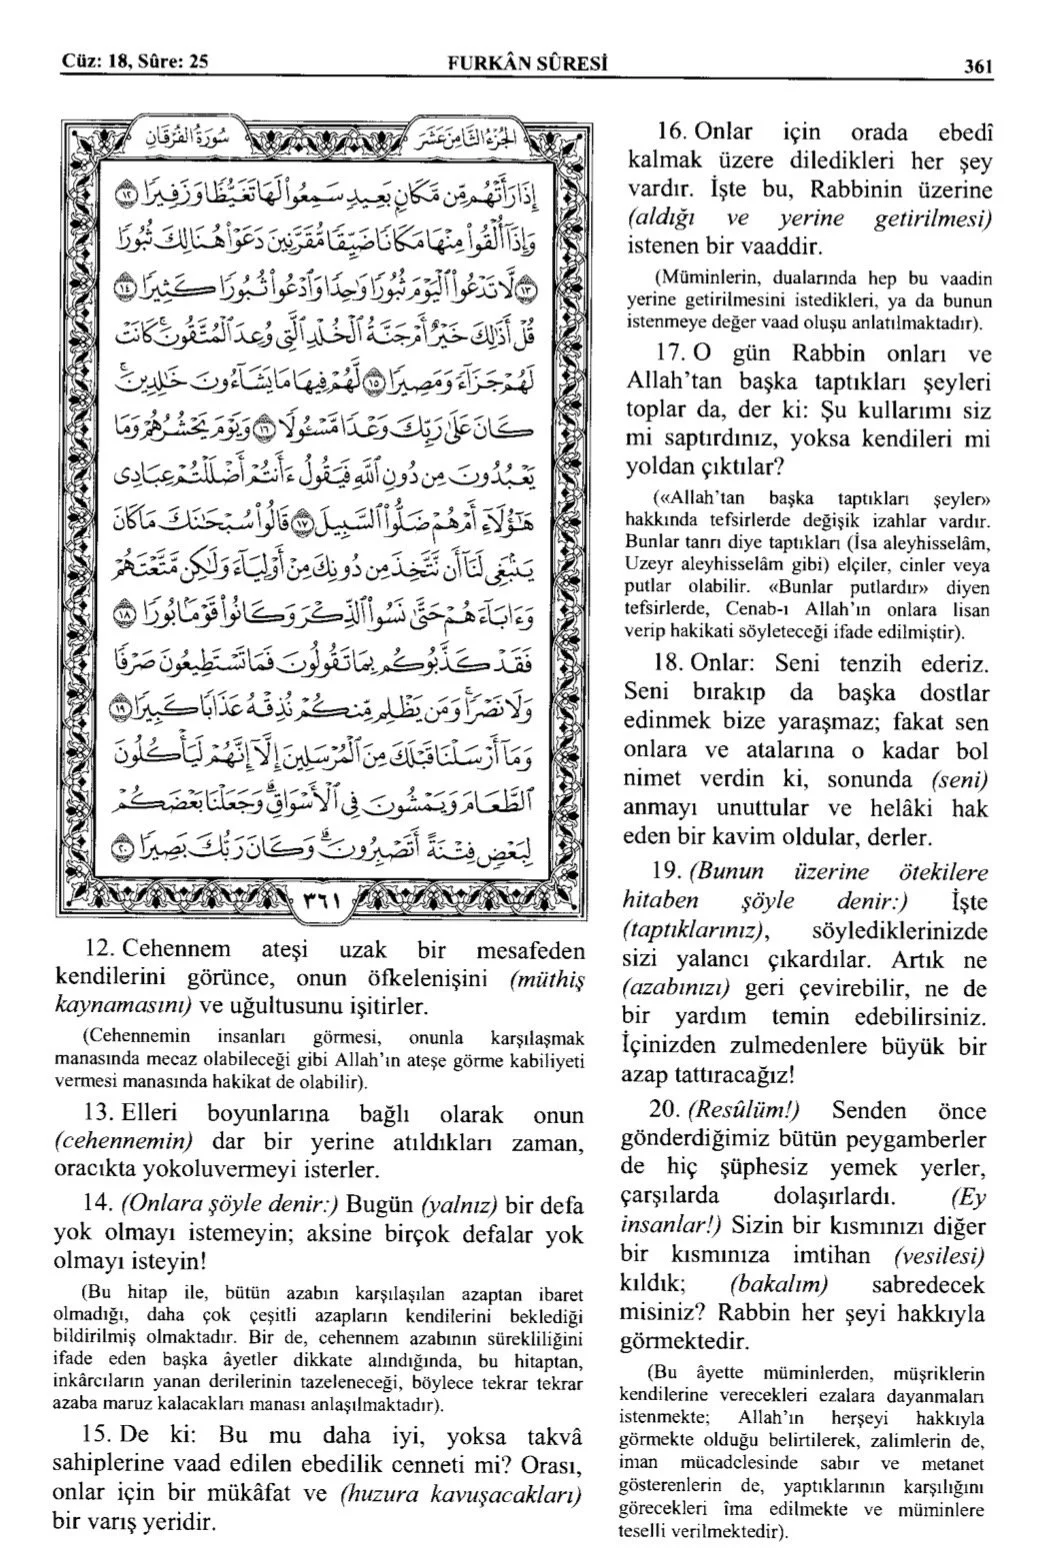 Cüz: 18, Sûre: 25
FURKÂN SÛRESİ
361
سُورَةُ الْفُرْقَانِ
الجُزْءُ الثَّامِنَ عَشَرَ
إِذَا رَأَتْهُمْ مِنْ مَكَانٍ بَعِيدٍ سَمِعُوا لَهَا تَغَيُّظًا وَزَفِيرًا ﴿١٢﴾
وَإِذَا أُلْقُوا مِنْهَا مَكَانًا ضَيِّقًا مُقَرَّنِينَ دَعَوْا هُنَالِكَ ثُبُورًا
﴿١٣﴾ لَا تَدْعُوا الْيَوْمَ ثُبُورًا وَاحِدًا وَادْعُوا ثُبُورًا كَثِيرًا ﴿١٤﴾
قُلْ أَذَٰلِكَ خَيْرٌ أَمْ جَنَّةُ الْخُلْدِ الَّتِي وُعِدَ الْمُتَّقُونَ ۚ كَانَتْ
لَهُمْ جَزَاءً وَمَصِيرًا ﴿١٥﴾ لَهُمْ فِيهَا مَا يَشَاءُونَ خَالِدِينَ ۚ
كَانَ عَلَىٰ رَبِّكَ وَعْدًا مَسْئُولًا ﴿١٦﴾ وَيَوْمَ يَحْشُرُهُمْ وَمَا
يَعْبُدُونَ مِنْ دُونِ اللَّهِ فَيَقُولُ ءَأَنْتُمْ أَضْلَلْتُمْ عِبَادِي
هَٰؤُلَاءِ أَمْ هُمْ ضَلُّوا السَّبِيلَ ﴿١٧﴾ قَالُوا سُبْحَانَكَ مَا كَانَ
يَنْبَغِي لَنَا أَنْ نَتَّخِذَ مِنْ دُونِكَ مِنْ أَوْلِيَاءَ وَلَٰكِنْ مَتَّعْتَهُمْ
وَءَابَاءَهُمْ حَتَّىٰ نَسُوا الذِّكْرَ وَكَانُوا قَوْمًا بُورًا ﴿١٨﴾
فَقَدْ كَذَّبُوكُمْ بِمَا تَقُولُونَ فَمَا تَسْتَطِيعُونَ صَرْفًا
وَلَا نَصْرًا ۚ وَمَنْ يَظْلِمْ مِنْكُمْ نُذِقْهُ عَذَابًا كَبِيرًا ﴿١٩﴾
وَمَا أَرْسَلْنَا قَبْلَكَ مِنَ الْمُرْسَلِينَ إِلَّا إِنَّهُمْ لَيَأْكُلُونَ
الطَّعَامَ وَيَمْشُونَ فِي الْأَسْوَاقِ ۗ وَجَعَلْنَا بَعْضَكُمْ
لِبَعْضٍ فِتْنَةً أَتَصْبِرُونَ ۗ وَكَانَ رَبُّكَ بَصِيرًا ﴿٢٠﴾
٣٦١
12. Cehennem ateşi uzak bir mesafeden
kendilerini görünce, onun öfkelenişini (müthiş
kaynamasını) ve uğultusunu işitirler.
(Cehennemin insanları görmesi, onunla karşılaşmak
manasında mecaz olabileceği gibi Allah'ın ateşe görme kabiliyeti
vermesi manasında hakikat de olabilir).
13. Elleri boyunlarına bağlı olarak onun
(cehennemin) dar bir yerine atıldıkları zaman,
oracıkta yokoluvermeyi isterler.
14. (Onlara şöyle denir:) Bugün (yalnız) bir defa
yok olmayı istemeyin; aksine birçok defalar yok
olmayı isteyin!
(Bu hitap ile, bütün azabın karşılaşılan azaptan ibaret
olmadığı, daha çok çeşitli azapların kendilerini beklediği
bildirilmiş olmaktadır. Bir de, cehennem azabının sürekliliğini
ifade eden başka âyetler dikkate alındığında, bu hitaptan,
inkârcıların yanan derilerinin tazeleneceği, böylece tekrar tekrar
azaba maruz kalacakları manası anlaşılmaktadır).
15. De ki: Bu mu daha iyi, yoksa takvâ
sahiplerine vaad edilen ebedilik cenneti mi? Orası,
onlar için bir mükâfat ve (huzura kavuşacakları)
bir varış yeridir.
16. Onlar için orada ebedî
kalmak üzere diledikleri her şey
vardır. İşte bu, Rabbinin üzerine
(aldığı ve yerine getirilmesi)
istenen bir vaaddir.
(Müminlerin, dualarında hep bu vaadin
yerine getirilmesini istedikleri, ya da bunun
istenmeye değer vaad oluşu anlatılmaktadır).
17. O gün Rabbin onları ve
Allah'tan başka taptıkları şeyleri
toplar da, der ki: Şu kullarımı siz
mi saptırdınız, yoksa kendileri mi
yoldan çıktılar?
(«Allah'tan başka taptıkları şeyler»
hakkında tefsirlerde değişik izahlar vardır.
Bunlar tanrı diye taptıkları (İsa aleyhisselâm,
Uzeyr aleyhisselâm gibi) elçiler, cinler veya
putlar olabilir. «Bunlar putlardır» diyen
tefsirlerde, Cenab-ı Allah'ın onlara lisan
verip hakikati söyleteceği ifade edilmiştir).
18. Onlar: Seni tenzih ederiz.
Seni bırakıp da başka dostlar
edinmek bize yaraşmaz; fakat sen
onlara ve atalarına o kadar bol
nimet verdin ki, sonunda (seni)
anmayı unuttular ve helâki hak
eden bir kavim oldular, derler.
19. (Bunun üzerine ötekilere
hitaben şöyle denir:) İşte
(taptıklarınız), söylediklerinizde
sizi yalancı çıkardılar. Artık ne
(azabınızı) geri çevirebilir, ne de
bir yardım temin edebilirsiniz.
İçinizden zulmedenlere büyük bir
azap tattıracağız!
20. (Resûlüm!) Senden önce
gönderdiğimiz bütün peygamberler
de hiç şüphesiz yemek yerler,
çarşılarda dolaşırlardı. (Ey
insanlar!) Sizin bir kısmınızı diğer
bir kısmınıza imtihan (vesilesi)
kıldık; (bakalım) sabredecek
misiniz? Rabbin her şeyi hakkıyla
görmektedir.
(Bu âyette müminlerden, müşriklerin
kendilerine verecekleri ezalara dayanmaları
istenmekte; Allah'ın herşeyi hakkıyla
görmekte olduğu belirtilerek, zalimlerin de,
iman mücadelesinde sabır ve metanet
gösterenlerin de, yaptıklarının karşılığını
görecekleri îma edilmekte ve müminlere
teselli verilmektedir).